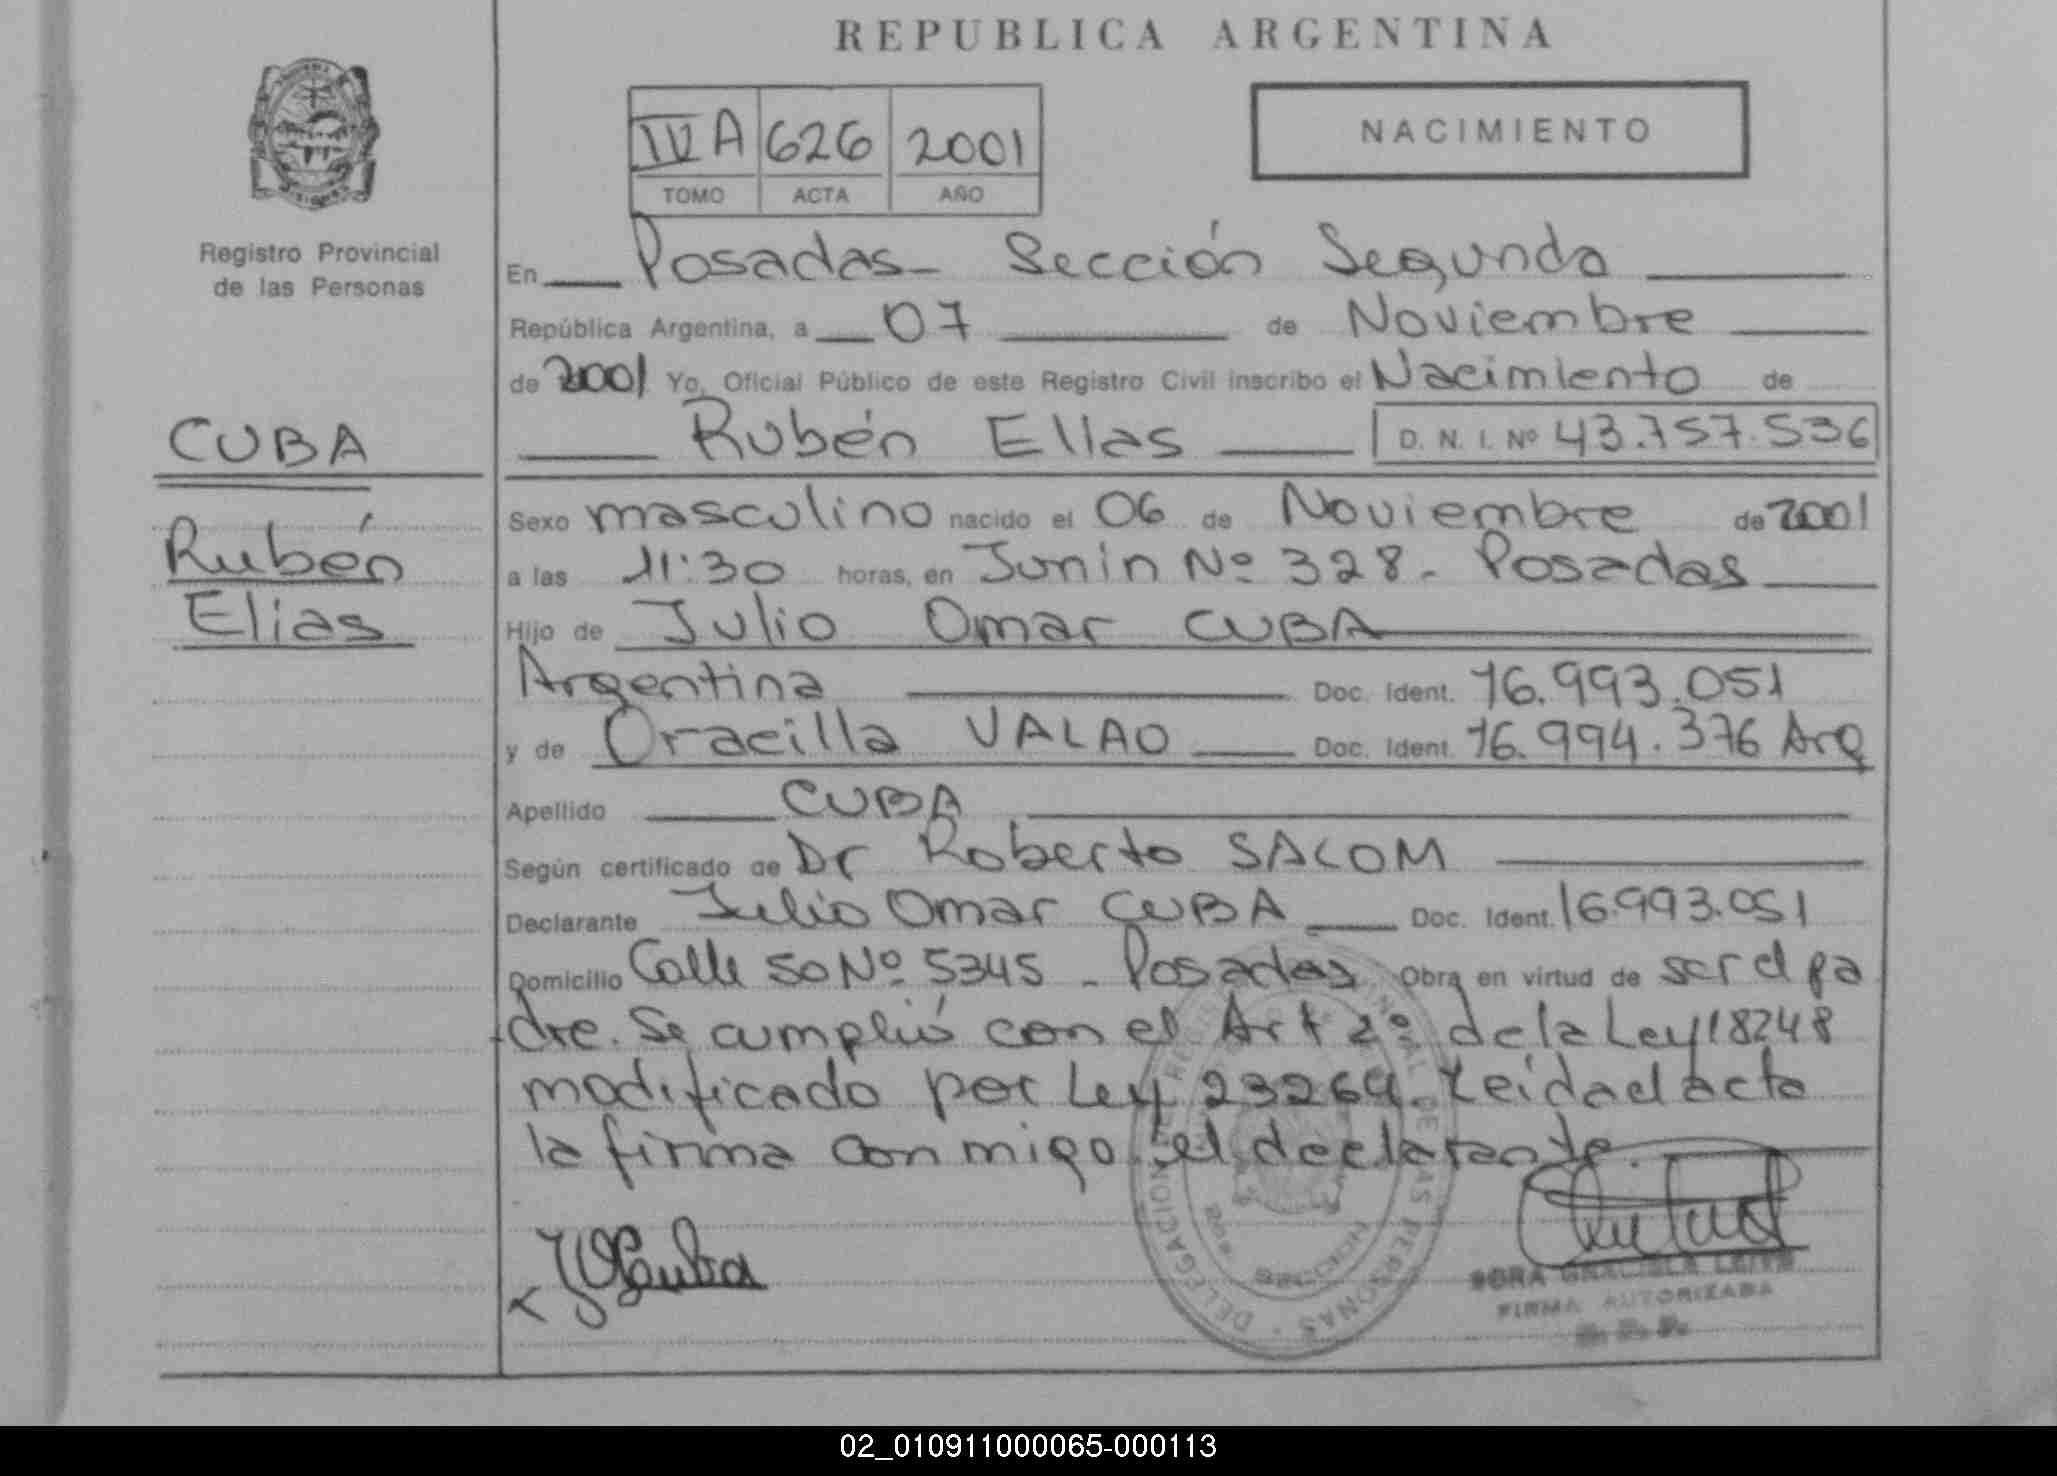 REPUBLICA ARGENTINA
NACIMIENTO
IV A 626 2001
TOMO ACTA AÑO
Registro Provincial
de las Personas
CUBA
Rubén
Elias
En Posadas - Sección Segunda
República Argentina, a 07 de Noviembre
de 2001 Yo, Oficial Público de este Registro Civil inscribo el Nacimiento de
Rubén Elias D. N. I. Nº 43.757.536
Sexo masculino nacido el 06 de Noviembre de 2001
a las 11:30 horas, en Junin Nº 328 - Posadas
Hijo de Julio Omar CUBA
Argentina Doc. Ident. 16.993.051
y de Oracilla VALAO Doc. Ident. 16.994.376 Arg
Apellido CUBA
Según certificado de Dr Roberto SACOM
Declarante Julio Omar CUBA Doc. Ident. 16.993.051
Domicilio Calle 50 Nº 5345 - Posadas Obra en virtud de ser el pa
dre. Se cumplió con el Art 2º de la Ley 18248
modificado por Ley 23264. Leida el acta
la firma conmigo el declarante.
DELEGACION PERSONAS SECCION
GRACIELA
FIRMA AUTORIZADA
02_010911000065-000113